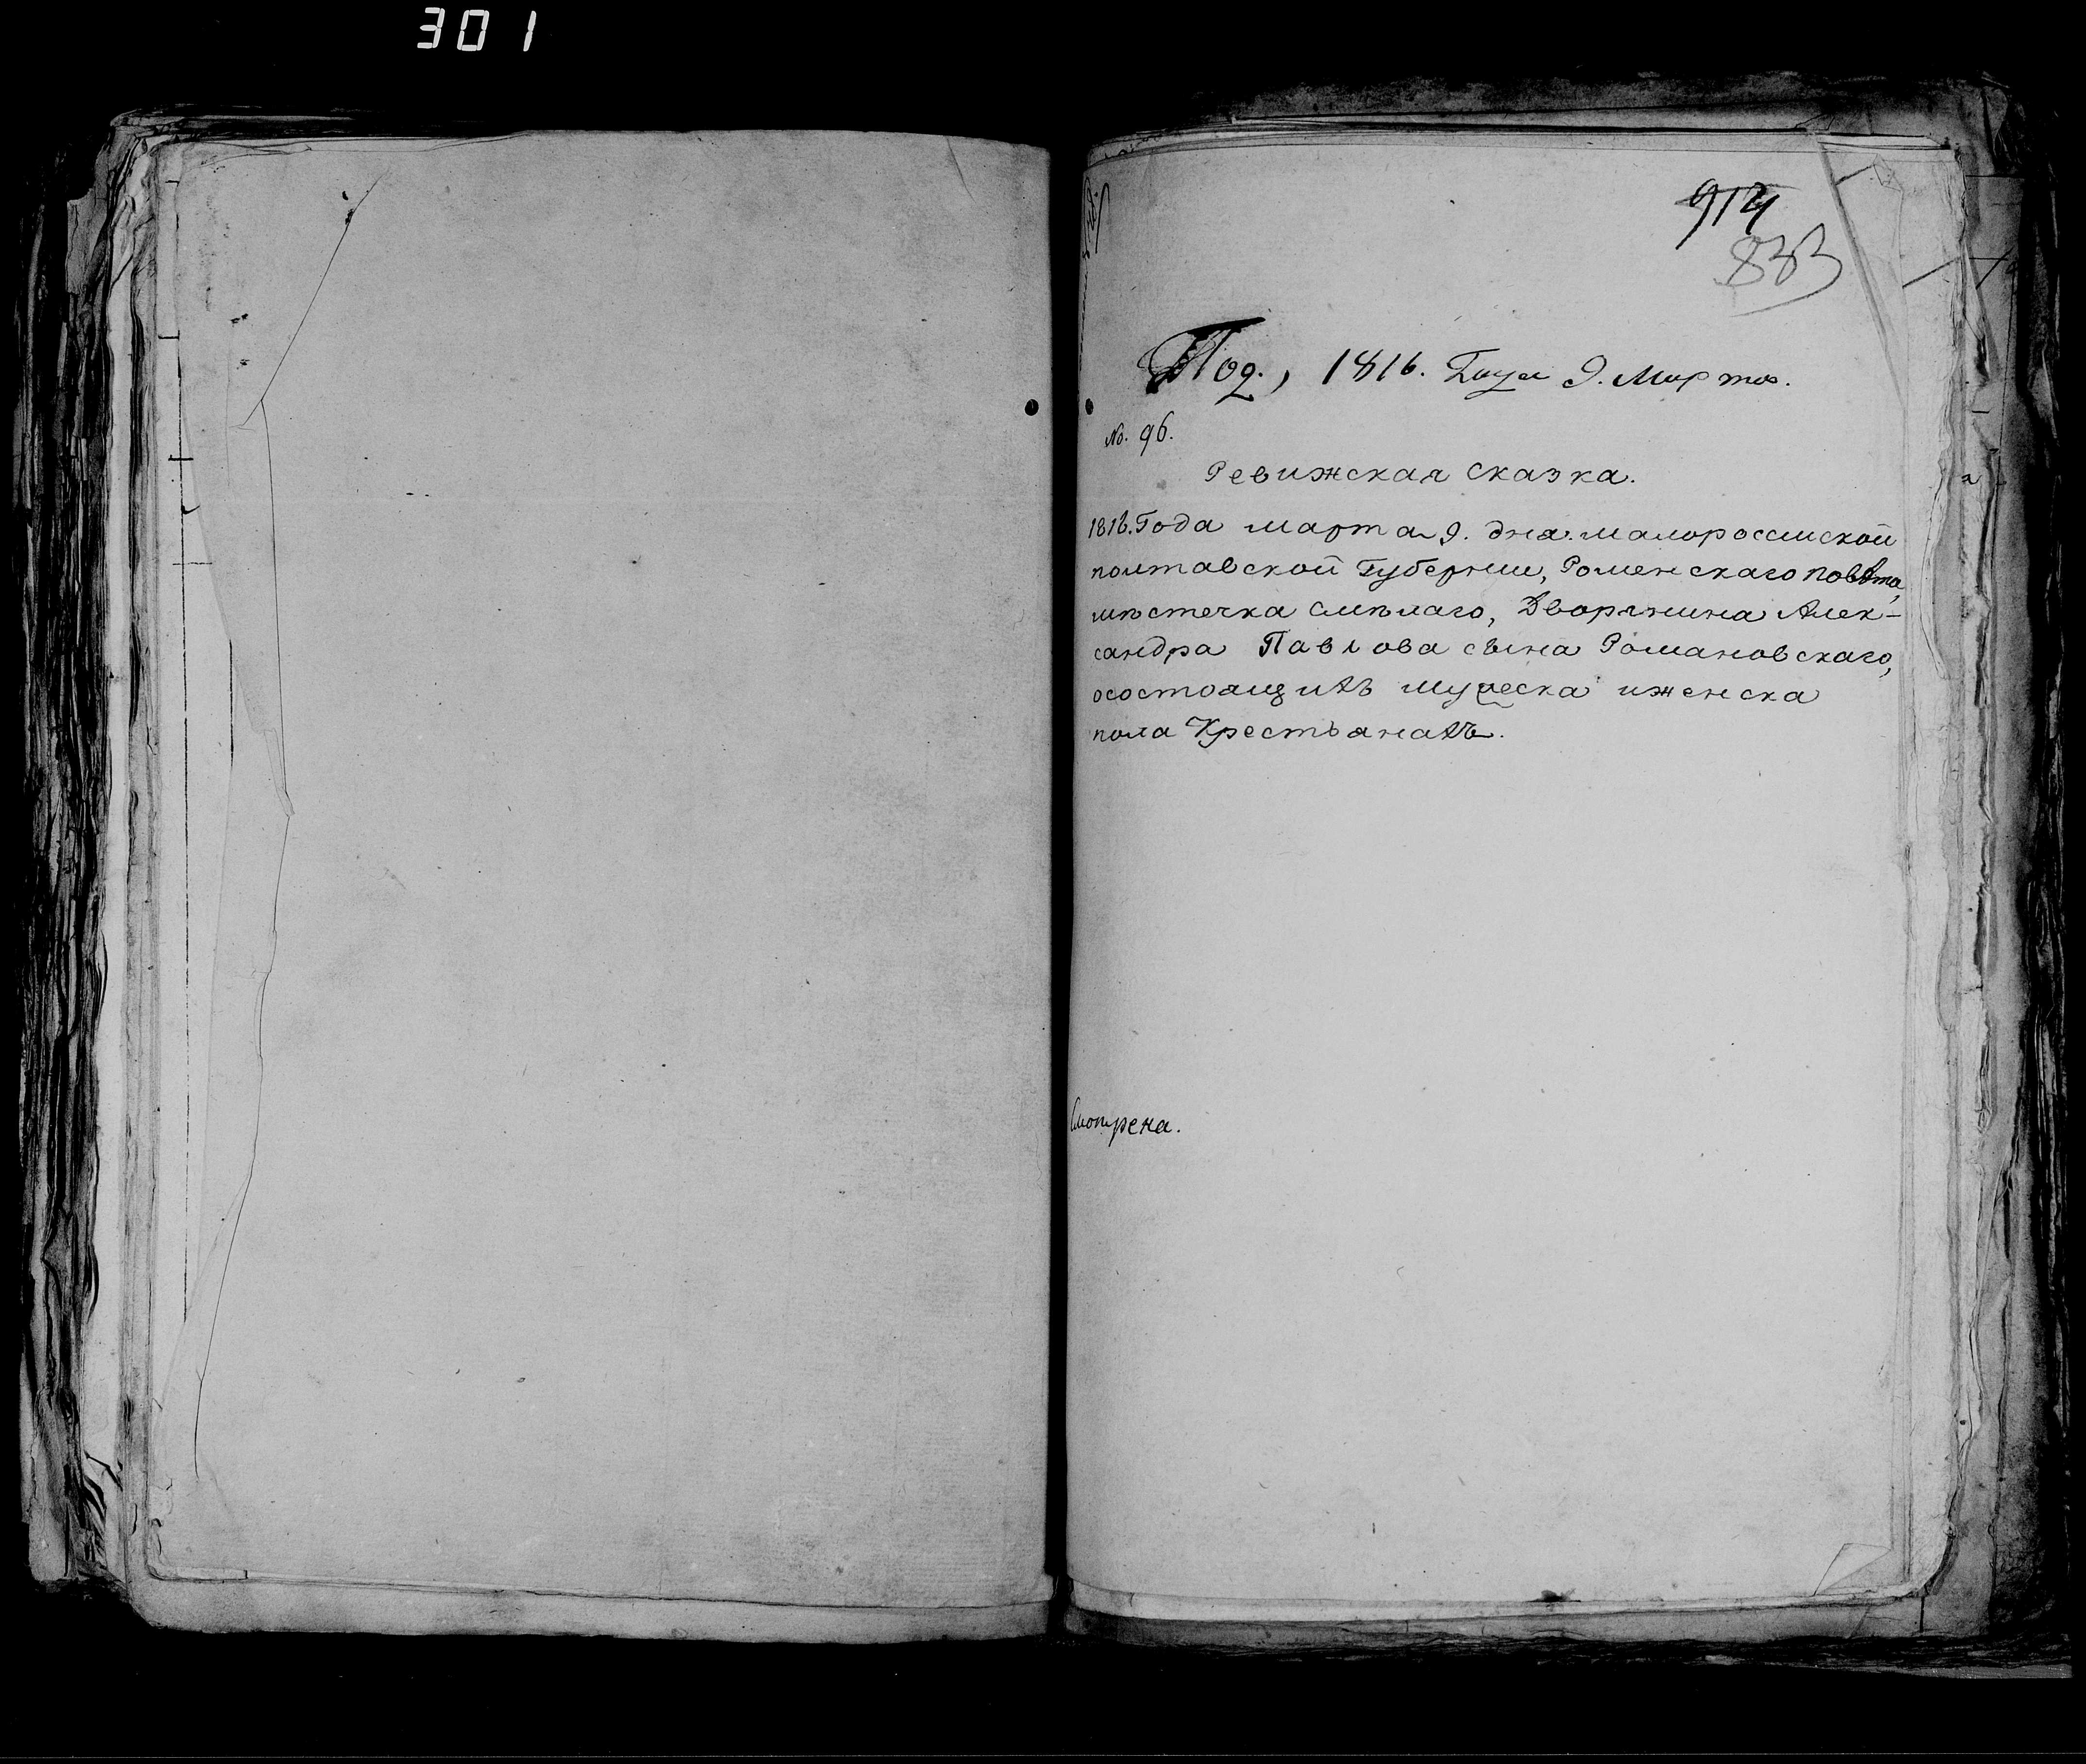 301
914
833
Под., 1816. Года 9. Марта.
No. 96.
Ревижская сказка.
1816. Года марта 9. дня. малороссийской
полтавской Губернии, Роменскаго повѣта,
мѣстечка смѣлаго, Дворянина Алек-
сандра Павлова сына Романовскаго,
осостоящихъ мужеска иженска
пола Крестьянахъ.
Смотрена.